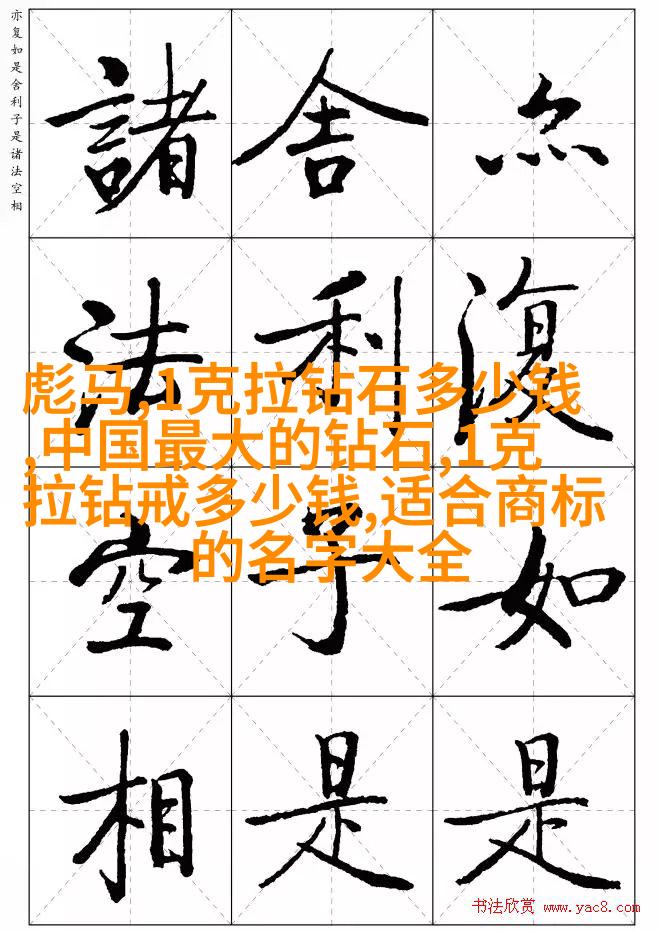 亦复如是舍利子是诸法空相
亦復如是
舍利子是
諸法空相
彪马,1克拉钻石多少钱
,中国最大的钻石,1克
拉钻戒多少钱,适合商标
的名字大全
书法欣赏 www.yac8.com